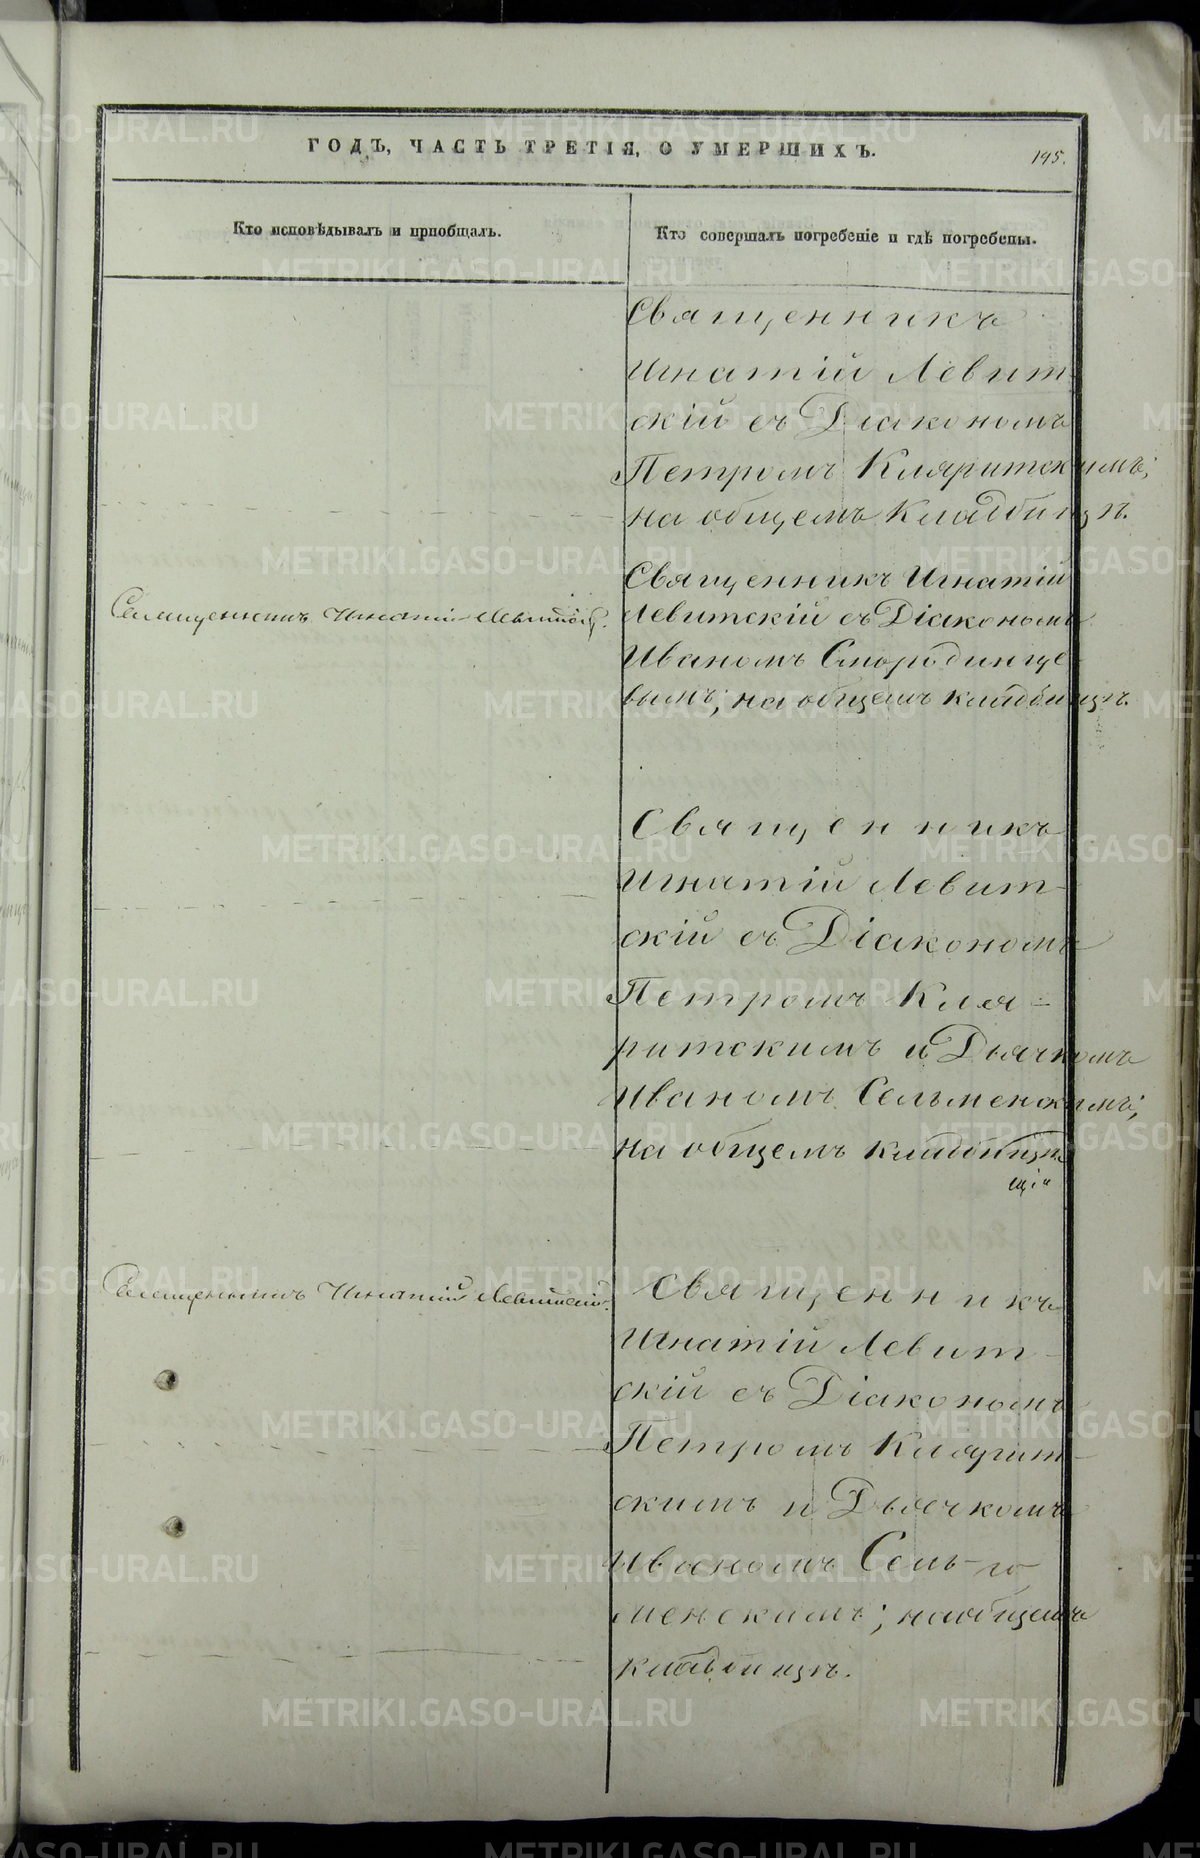 ГОДЪ, ЧАСТЬ ТРЕТІЯ, О УМЕРШИХЪ.
195.
Кто исповѣдывалъ и пріобщалъ.
Кто совершалъ погребеніе и гдѣ погребены.
Священникъ
Игнатій Левит-
скій съ Діакономъ
Петромъ Кляритскимъ;
на общемъ кладбищѣ.
Священникъ Игнатій Левитскій.
Священникъ Игнатій
Левитскій съ Діакономъ
Иваномъ Смородинце-
вымъ; на общемъ кладбищѣ.
Священникъ
Игнатій Левит-
скій съ Діакономъ
Петромъ Кля-
ритскимъ и Дьячкомъ
Иваномъ Сельменскимъ;
на общемъ кладбищѣ
Священникъ Игнатій Левитскій.
Священникъ
Игнатій Левит-
скій съ Діакономъ
Петромъ Клярит-
скимъ и Дьячкомъ
Иваномъ Сель-
менскимъ; на общемъ
кладбищѣ.
METRIKI.GASO-URAL.RU